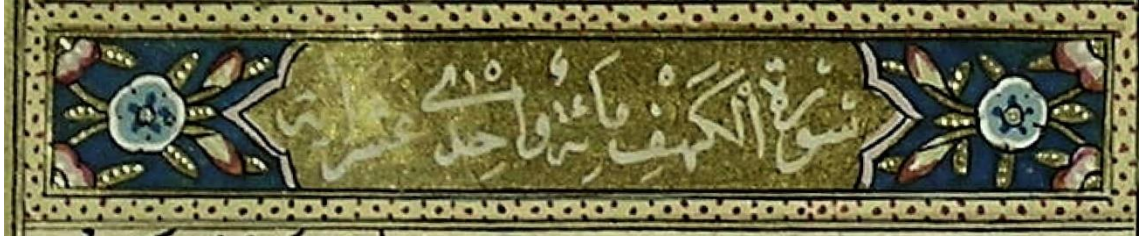 سورة الكهف مائة واحدى عشر اية